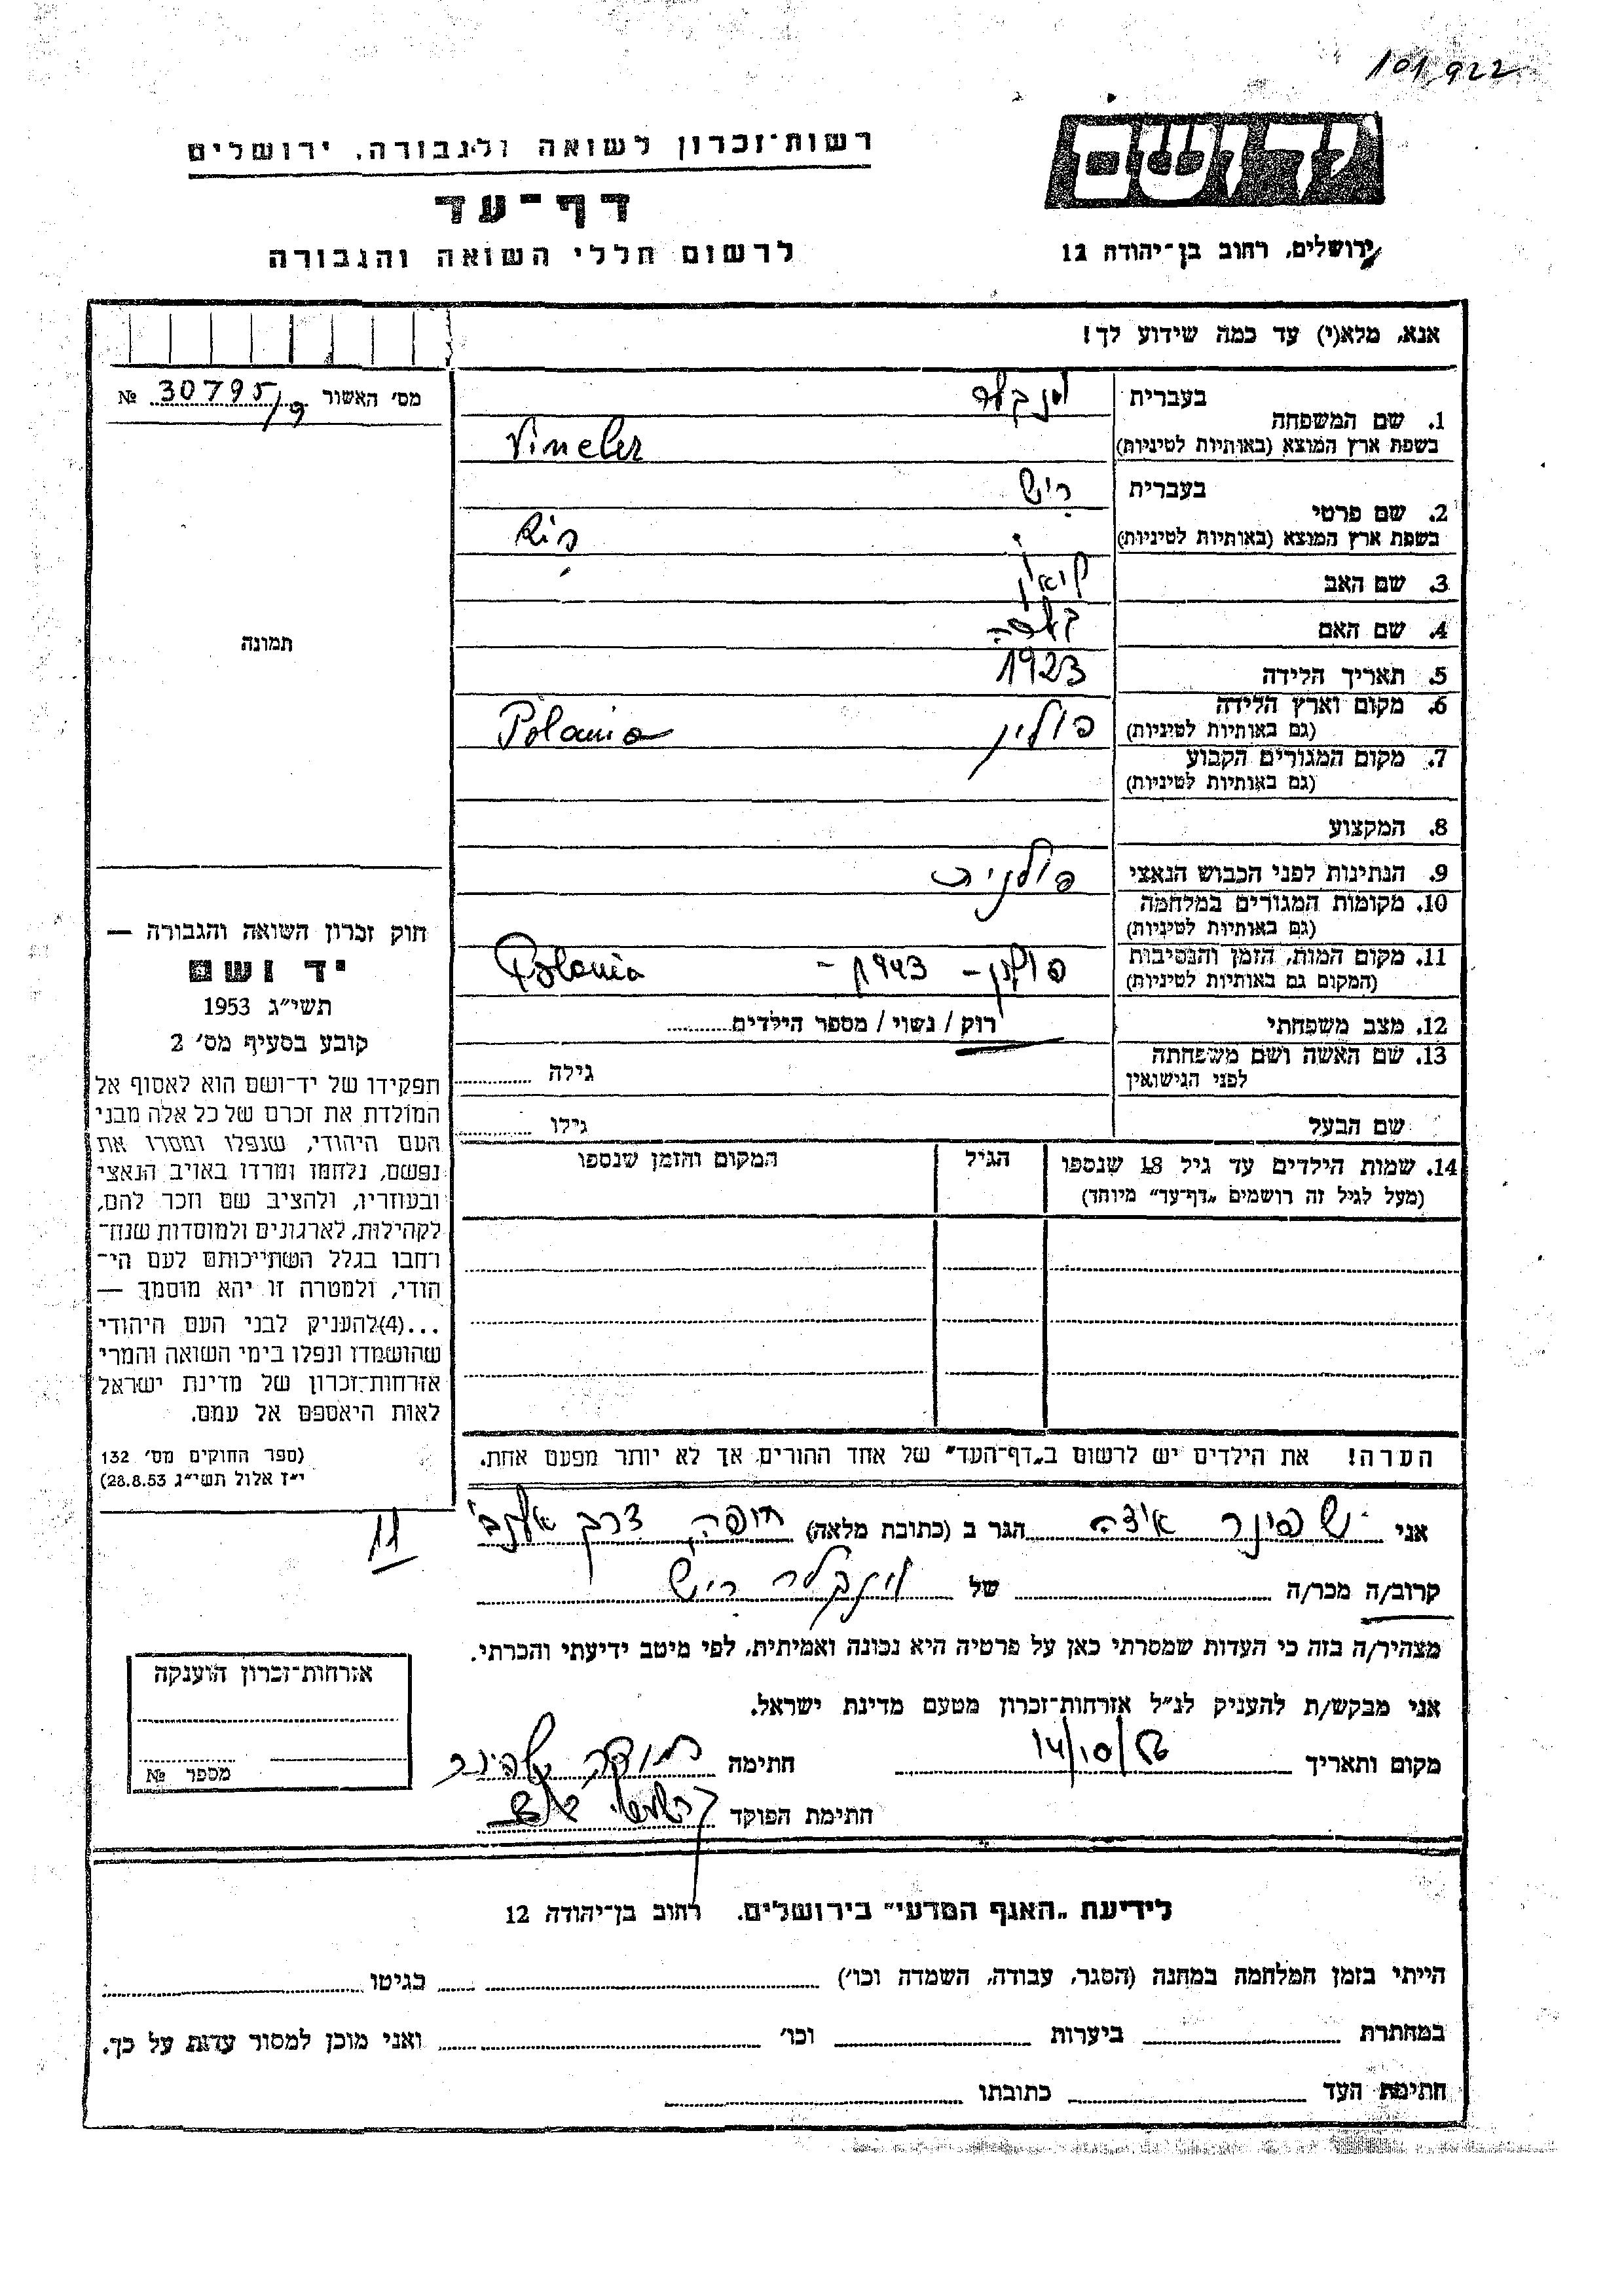 101922
רשות־זכרון לשואה ולגבורה, ירושלים
יד ושם
דף־עד
לרשום חללי השואה והגבורה
ירושלים, רחוב בן־יהודה 12
אנא, מלא(י) עד כמה שידוע לך!
מס׳ האשור 30795/9 №
בעברית
1. שם המשפחה
בשפת ארץ המוצא (באותיות לטיניות) Vincler
בעברית ריש
2. שם פרטי
בשפת ארץ המוצא (באותיות לטיניות) Ris
3. שם האב
4. שם האם
תמונה
5. תאריך הלידה 1923
6. מקום וארץ הלידה פולין Polania
(גם באותיות לטיניות)
7. מקום המגורים הקבוע
(גם באותיות לטיניות)
8. המקצוע
9. הנתינות לפני הכבוש הנאצי פולנית
10. מקומות המגורים במלחמה
(גם באותיות לטיניות)
11. מקום המות, הזמן והנסיבות פולין – 1943 – Polania
(המקום גם באותיות לטיניות)
12. מצב משפחתי רוק / נשוי / מספר הילדים
13. שם האשה ושם משפחתה גילה
לפני הנישואין
שם הבעל גילו
14. שמות הילדים עד גיל 18 שנספו הגיל המקום והזמן שנספו
(מעל לגיל זה רושמים „דף־עד” מיוחד)
חוק זכרון השואה והגבורה —
יד ושם
תשי״ג 1953
קובע בסעיף מס׳ 2
תפקידו של יד־ושם הוא לאסוף אל
המולדת את זכרם של כל אלה מבני
העם היהודי, שנפלו ומסרו את
נפשם, נלחמו ומרדו באויב הנאצי
ובעוזריו, ולהציב שם וזכר להם,
לקהילות, לארגונים ולמוסדות שנח־
רבו בגלל השתייכותם לעם הי־
הודי, ולמטרה זו יהא מוסמך —
...(4)להעניק לבני העם היהודי
שהושמדו ונפלו בימי השואה והמרי
אזרחות־זכרון של מדינת ישראל
לאות היאספם אל עמם.
(ספר החוקים מס׳ 132
י״ז אלול תשי״ג 28.8.53)
הערה! את הילדים יש לרשום ב„דף־העד” של אחד ההורים אך לא יותר מפעם אחת.
אני שפינר איצה הגר ב (כתובת מלאה) חיפה דרך אלנבי
11
קרוב/ה מכר/ה של וינקלר ריש
מצהיר/ה בזה כי העדות שמסרתי כאן על פרטיה היא נכונה ואמיתית, לפי מיטב ידיעתי והכרתי.
אני מבקש/ת להעניק לנ״ל אזרחות־זכרון מטעם מדינת ישראל.
מקום ותאריך 14/10/56 חתימה
חתימת הפוקד
אזרחות־זכרון הוענקה
מספר №
לידיעת „האגף המדעי” בירושלים. רחוב בן־יהודה 12
הייתי בזמן המלחמה במחנה (הסגר, עבודה, השמדה וכו׳) בגיטו
במחתרת ביערות וכו׳ ואני מוכן למסור עדות על כך.
חתימת העד כתובתו